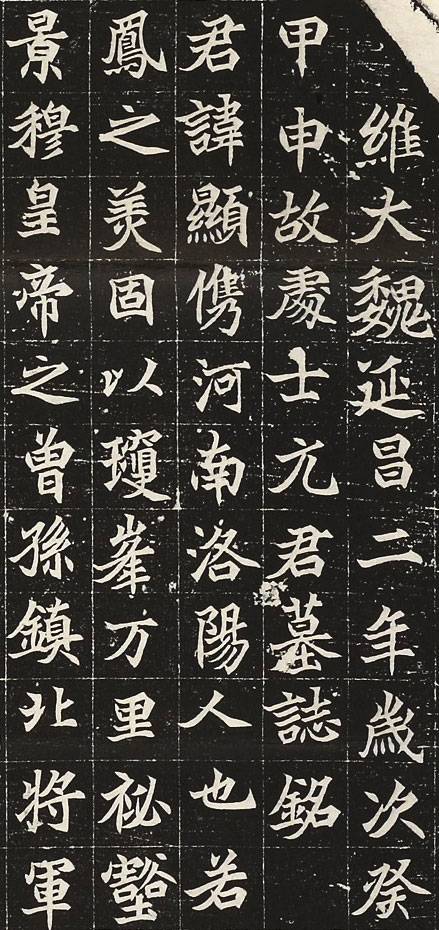 維大魏延昌二年歲次癸
甲申故處士元君墓誌銘
君諱顯儁河南洛陽人也若
鳳之美固以瓊峯万里祕壑
景穆皇帝之曾孫鎮北將軍